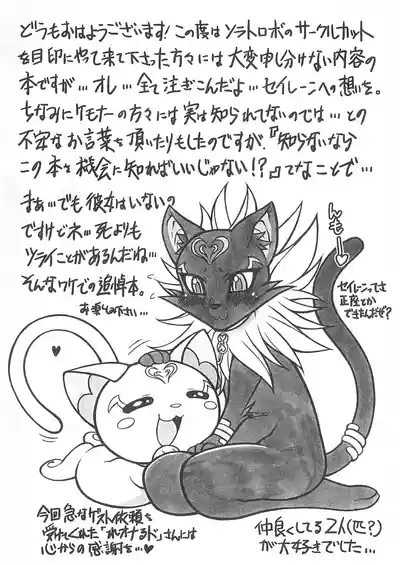 どうもおはようございます！この度はソラトロボのサークルカット
を目印にやって来て下さった方々には大変申し分けない内容の
本ですが…オレ…全て注ぎこんだよ…セイレーンへの想いを。
ちなみにケモナーの方々には実は知られてないのでは…との
不安なお言葉を頂いたりもしたのですが、『知らないなら
この本を機会に知ればいいじゃない!?』てなことで…
まぁ…でも彼女はいないの
ですけどネ…死よりも
ツライことがあるんだね…
そんなワケでの追悼本。
お楽しみ下さい…
んもー
セイレーンってさ
正座とか
できたんだぜ？
今回急なゲスト依頼を
受けてくれた「れオナるド」さんには
心からの感謝を…♥
仲良くしてる2人(匹？)
が大好きでした…